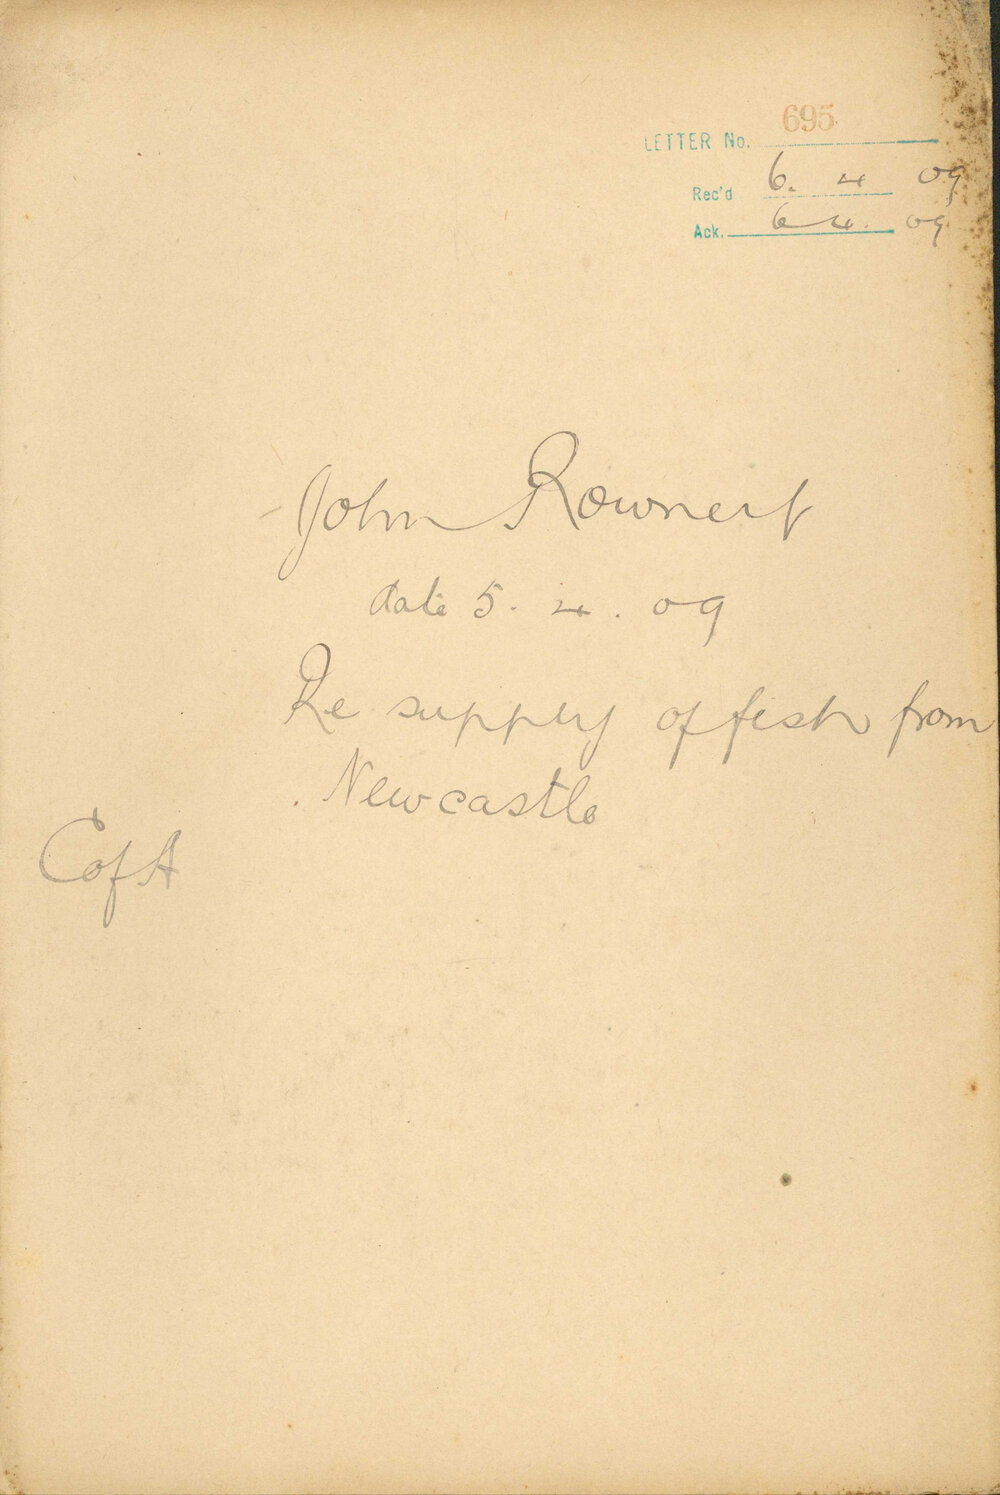 LETTER No. 695
Rec'd 6. 4 09
Ack. 6 4. 09
John Rownert
date 5. 4. 09
Re supply of fish from
Newcastle
C of A